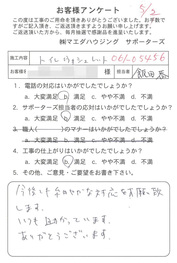 お客様アンケート
この度は工事のご用命をありがとうございました。お手数で
すがご記入頂き、ご返送頂きますようお願い申し上げます。
ご返送頂いた方から、毎月抽選で感謝品を進呈いたします。
㈱マエダハウジング サポーターズ
施工内容
お客様名
様
担当者
1. 電話の対応はいかがでしたでしょうか?
a. 大変満足 b. 満足 c. やや不満 d. 不満
2. サポーターズ担当者の応対はいかがでしたでしょうか?
a. 大変満足 b. 満足 c. やや不満 d. 不満
3. 職人( )のマナーはいかがでしたでしょうか?
a. 大変満足 b. 満足 c. やや不満 d. 不満
4. 工事の仕上がりはいかがでしたでしょうか?
a. 大変満足 b. 満足 c. やや不満 d. 不満
5. その他、ご意見・ご要望をお書き下さい。
対応をお願い致
します。
いつも助かっています。
ありがとうございます。